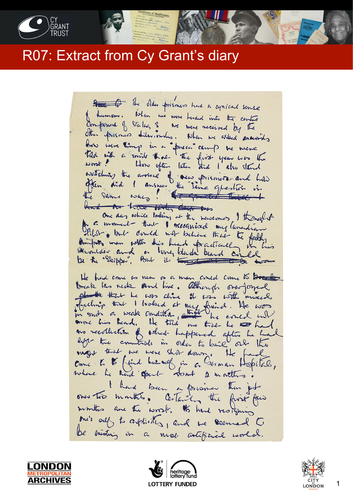 CY
GRANT
TRUST
R07: Extract from Cy Grant's diary
the older prisoners had a cynical sense
of humour. When we were herded into the centre
compound of Stalag 3 we were received by the
other prisoners
how were things in a prison camp we were
told with a smile that the first year was the
worst! How often later did I also stand
watching the arrival of new prisoners and how
often did I answer the same question in
the same way!
One day while looking at the newcomers, I thought
for a moment that I recognised my Canadian
Pilot - but could not believe that the
man with his head practically on his
shoulder and a long black beard could
be the "Skipper". But it
He had come as near as a man could come to
break his neck and live. Although overjoyed
that he was alive it was with mixed
feelings that I looked at my friend. He was
in such a weak condition, that he could not
move his head. He told me that he had
no recollection of what happened after he had
left the controls in order to bail out the
night that we were shot down. He had
come to to find himself in a German Hospital,
where he had spent about 2 months.
I had been a prisoner then just
over two months. Certainly the first few
months are the worst. To have resigned
one's self to captivity, and we seemed to
be existing in a most artificial world.
LONDON
METROPOLITAN
ARCHIVES
heritage
lottery fund
LOTTERY FUNDED
CITY
OF
LONDON
1